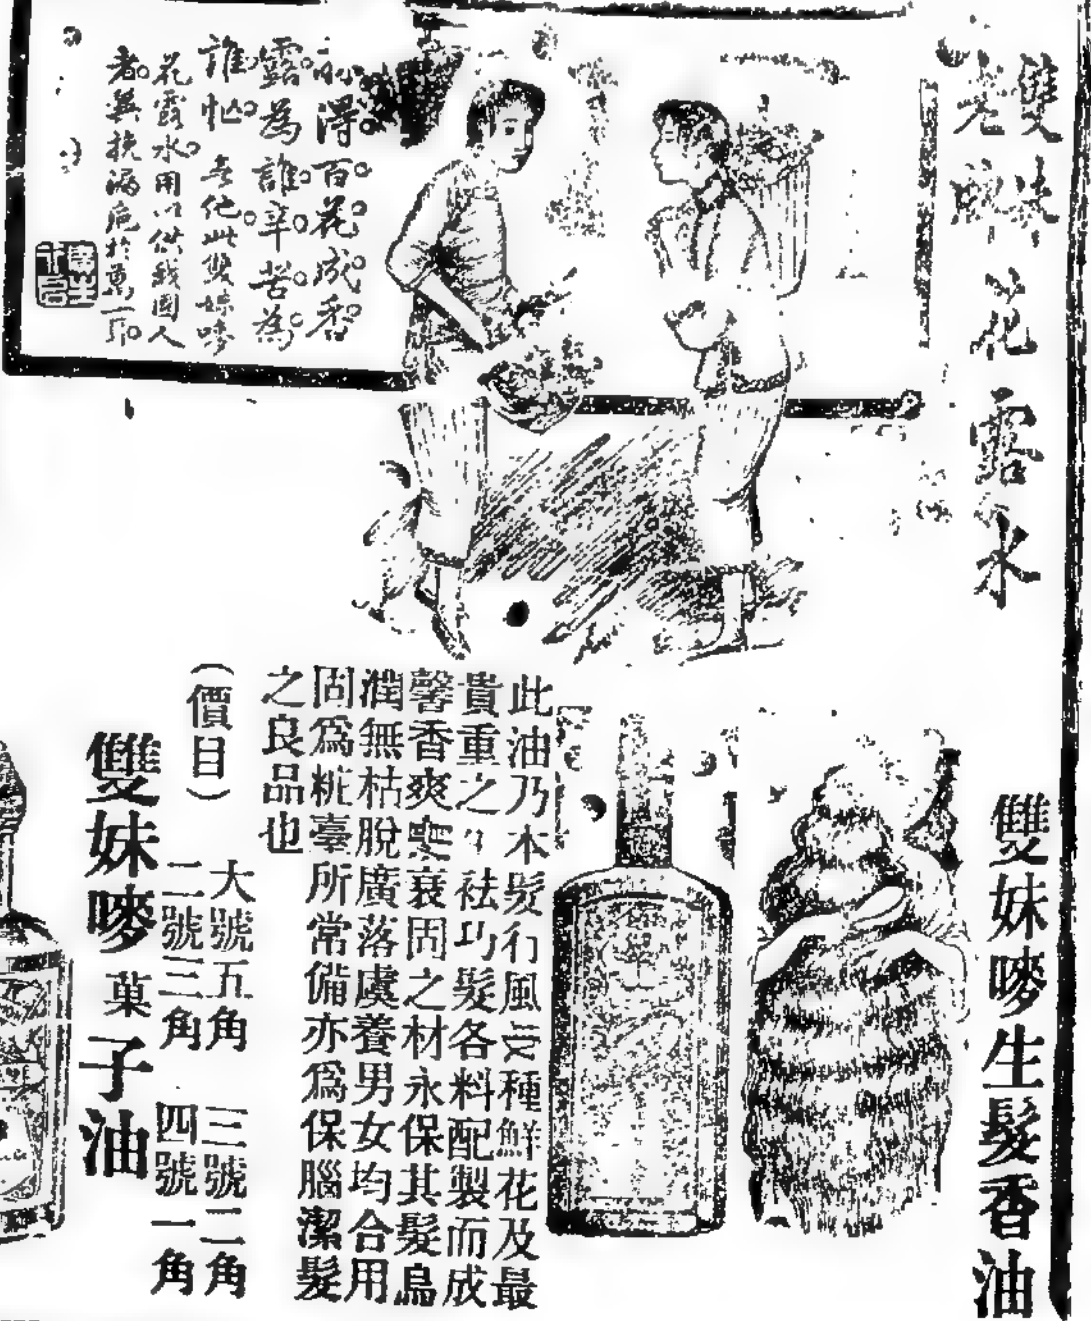 雙妹
老牌
花露水
採得百花成香
露為誰辛苦為
誰忙 無他此雙妹嘜
花露水用以供我國人
者無挽漏巵於萬一耳
廣生
行
雙妹嘜生髮香油
此油乃本 行 種鮮花及最
貴重之 祛 髮各料配製而成
馨香爽 之材永保其髮烏
潤無枯脫 落虞養男女均合用
固爲粧臺所常備亦爲保腦潔髮
之良品也
(價目)
大號五角 三號二角
二號三角 四號一角
雙妹嘜菓子油